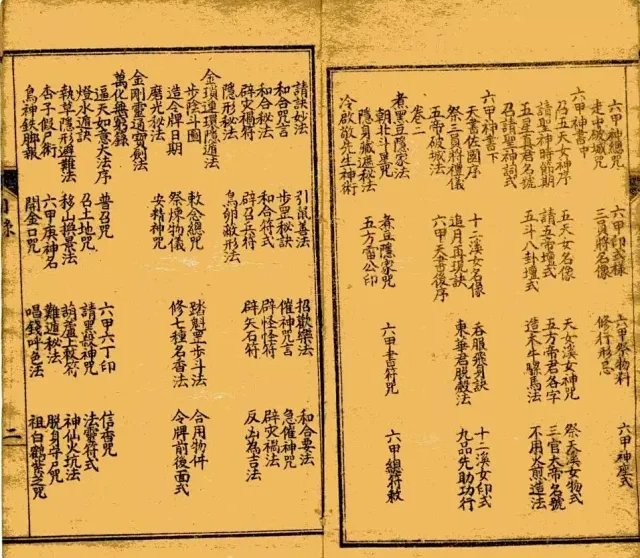 六甲神總咒 六甲印式樣 六甲祭物料 六甲神壇式
走中破城咒 三員將名像 修行形忌
六甲神書中
乃五大天神序 五天女名像 天女溪女神咒 祭天溪女物式
請五神時節期 請五帝壇式 五方帝君各字 三官大帝名號
五星真君名號 五斗八卦壇式 造木牛騾馬法 不用火煎造法
召請星神詞式
六甲神書下
天書佐國序 十二溪女名像 吞服飛身訣 十二溪女印式
祭三員將禮儀 追月再現訣 東華君脱殼法 九品先助功行
五帝破城法 六甲天書後序
卷二
煮黑豆隱家法 煮豆隱家咒 六甲書符咒 六甲總符敕
朝北斗星咒 五方雷公印
隱身藏遮秘法
冷啟敬先生神術
請訣妙法 引鼠善法 招歡樂法 和合要法
和合咒言 步罡秘訣 催神咒言 急催神咒
和合秘法 和合符式 辟怪怪符 辟灾禍法
辟灾禍符 辟召兵符 辟矢石符 反凶為吉法
隱形秘法 烏卵敝形法
金鎖連環隱遁法
步陰斗圖 敕令總咒 踏魁罡步斗法 合用物件
造令牌日期 祭煉物儀 修七種名香法 令牌前後面式
磨光秘法 安精神咒
金剛靈通寶劍法
萬化無窮錄
逼天如意大法序 普召咒 六甲六丁印 信香咒
燈水遁訣 召土地咒 請黑煞神咒 法靈符式
執草隱形避難法 移山換景法 葫蘆上秘符 神仙火坑法
杏子假尸術 六甲庚神名 難遁秘法 脱身尋尸咒
烏神鉄脚報 開金口咒 唱錢呼色法 祖白鶴紫芝咒
目錄 二